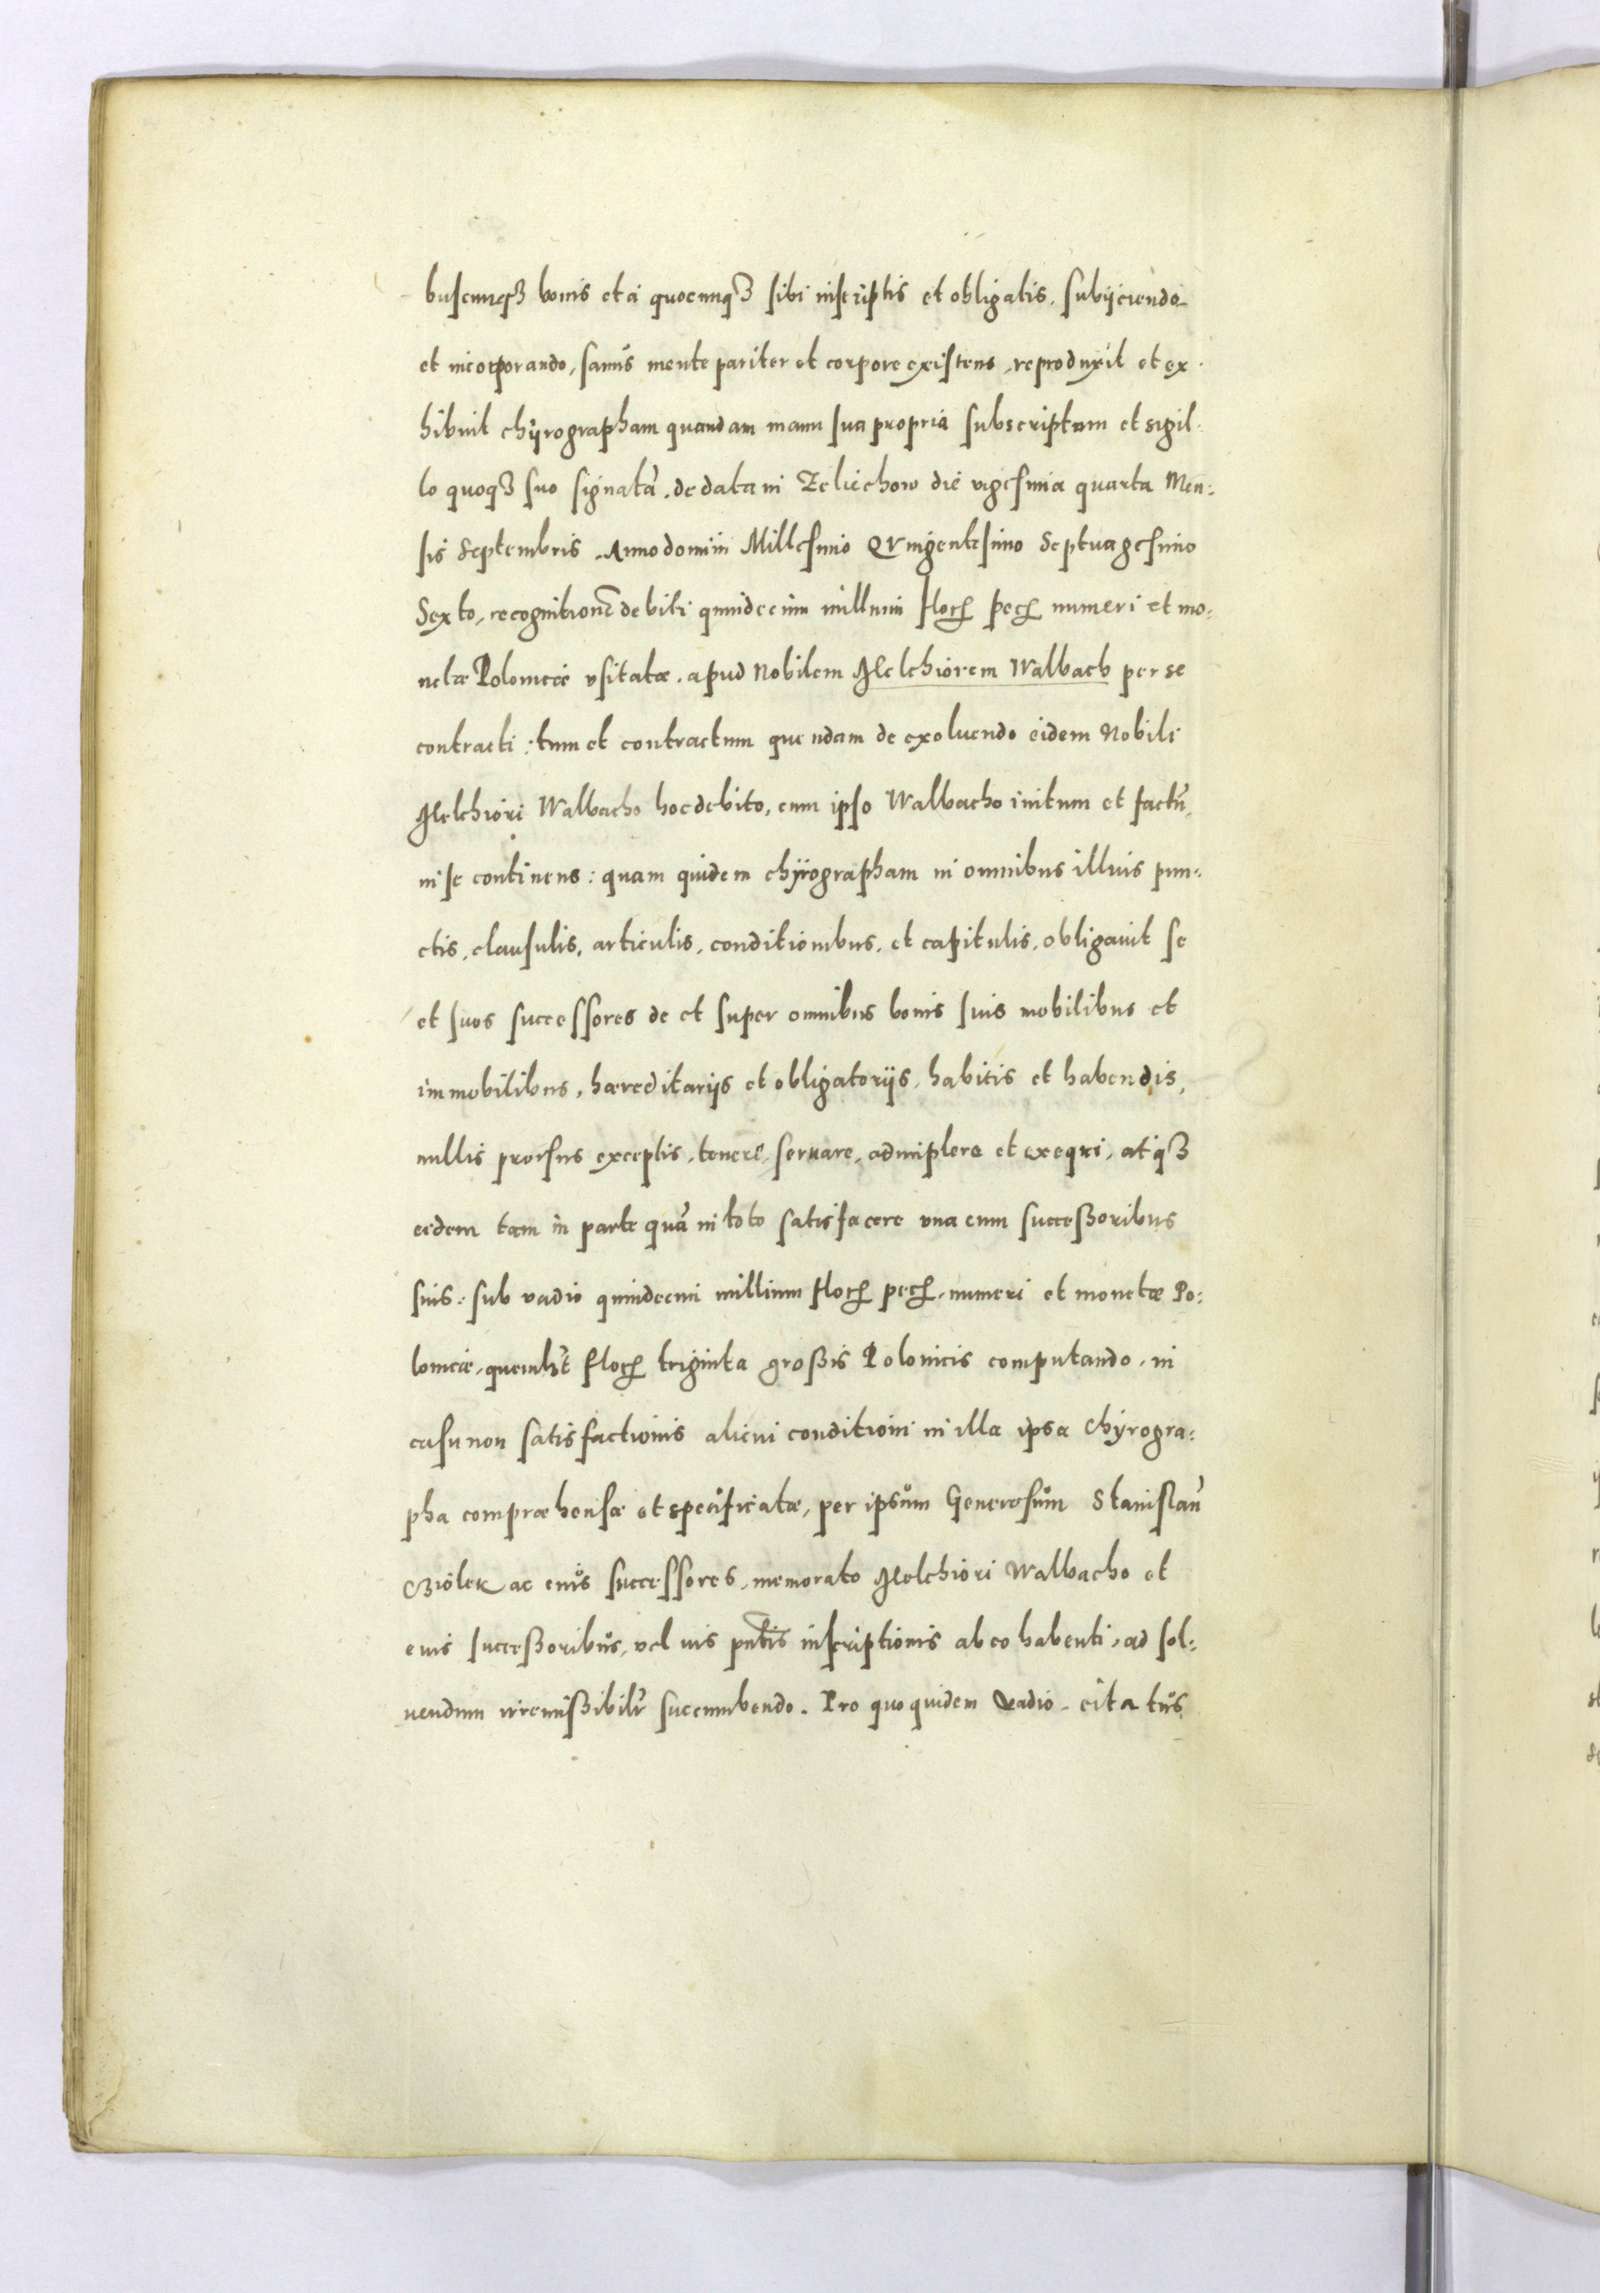 buscunqꝫ bonis et a quocunqꝫ sibi inscriptis et obligatis, subijciendo
et incorporando, sanus mente pariter et corpore existens, reproduxit et ex-
hibuit chÿrographam quandam manu sua propria subscriptam et sigil-
lo quoqꝫ suo signatã, de data in Zeliechow die vigesima quarta Men-
sis Septembris Anno domini Millesimo Qvingentesimo Septuagesimo
Sexto, recognitionẽ debiti quindecim millium floꝝ pecꝝ numeri et mo-
netæ Polonicæ vsitatæ, apud Nobilem Melchiorem Walbach per se
contracti: tum et contractum quendam de exoluendo eidem Nobili
Melchiori Walbacho hoc debito, cum ipso Walbacho initum et factũ,
in se continens: quam quidem chÿrographam in omnibus illius pun-
ctis, clausulis, articulis, conditionibus, et capitulis, obligauit se
et suos successores de et super omnibus bonis suis mobilibus et
immobilibus, hæreditarijs et obligatorijs, habitis et habendis,
nullis prorsus exceptis, tenere, seruare, adimplere et exequi, atqꝫ
eidem tam in parte quã in toto satisfacere vna cum successoribus
suis: sub vadio quindecim millium floꝝ pecꝝ, numeri et monetæ Po-
lonicæ, quemlꝫt floꝝ triginta grossis Polonicis computando, in
casu non satisfactionis alicui conditioni in illa ipsa Chÿrogra-
pha compræhensæ et specificatæ, per ipsum Generosum Stanislaũ
Bziolek ac eius successores, memorato Melchiori Walbacho et
eius successoribus, vel ius pñtis inscriptionis ab eo habenti, ad sol-
uendum irremissibilr̃ succumbendo. Pro quo quidem vadio citatus